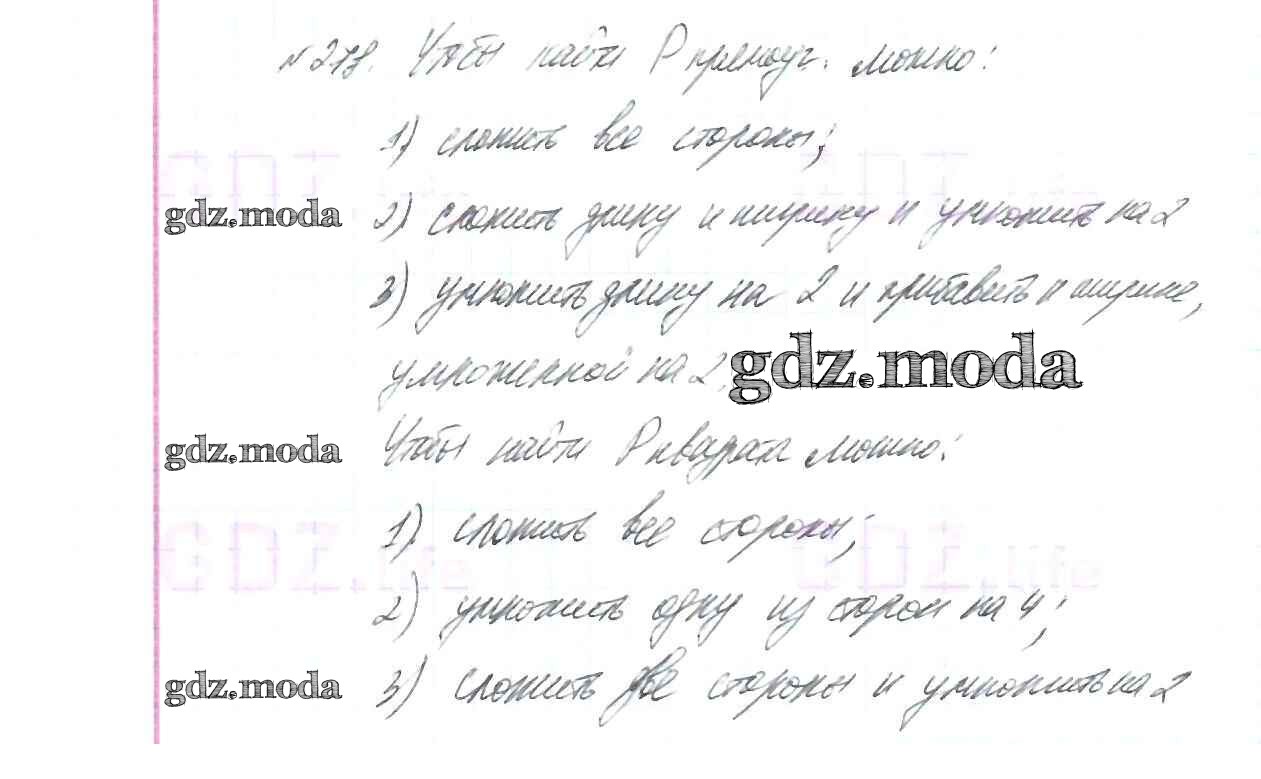 №278. Чтобы найти P прямоуг. можно:
1) сложить все стороны;
2) сложить длину и ширину и умножить на 2
3) умножить длину на 2 и прибавить к ширине,
умноженной на 2;
Чтобы найти P квадрата можно:
1) сложить все стороны;
2) умножить одну из сторон на 4;
3) сложить две стороны и умножить на 2
gdz.moda
gdz.moda
gdz.moda
gdz.moda
GDZ.life
GDZ.life
GDZ.life
GDZ.life